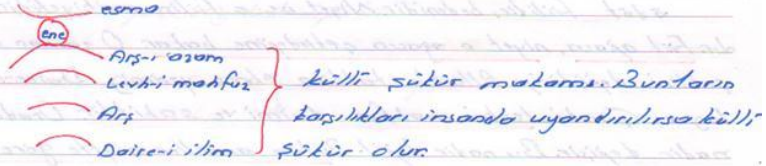 esma
ene
Arş-ı azam
Levh-i mahfuz
Arş
Daire-i ilim
külli şükür makamı. Bunların
karşılıkları insanda uyandırılırsa külli
şükür olur.